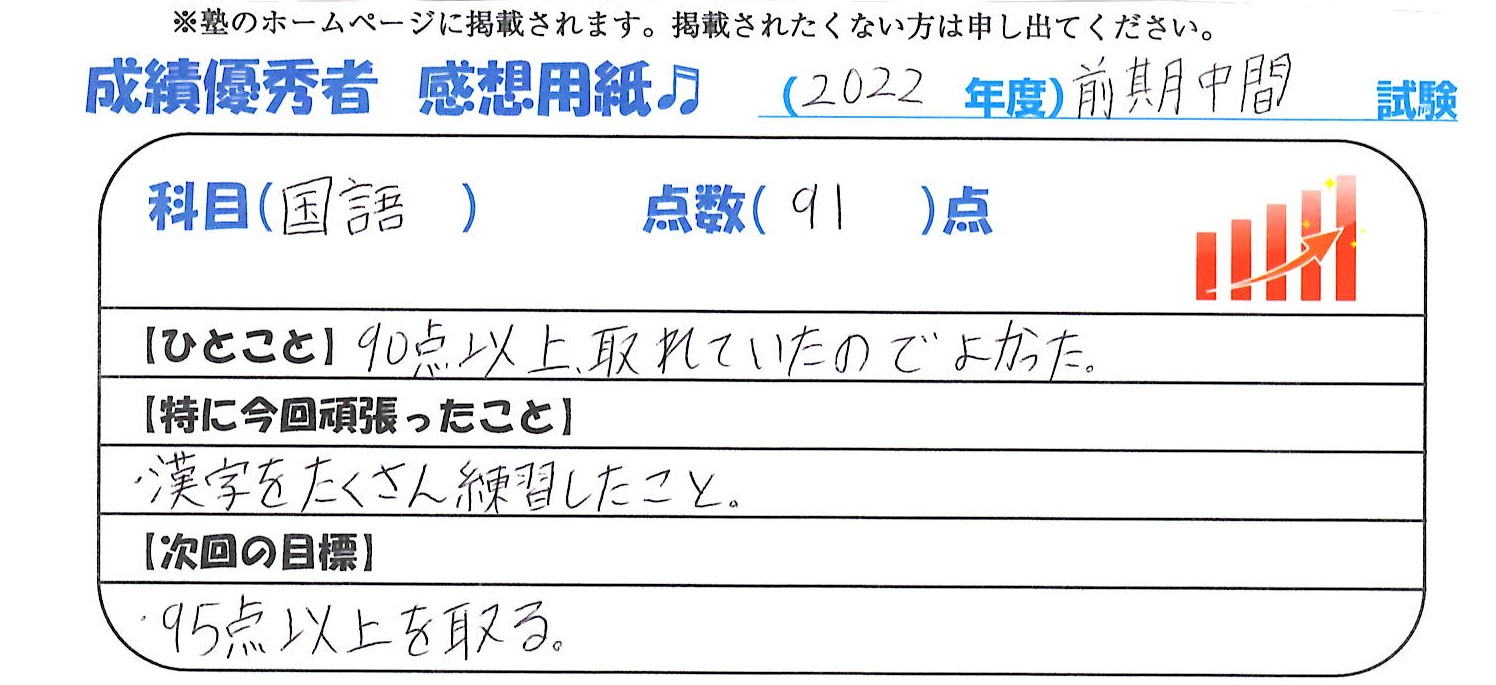 ※塾のホームページに掲載されます。掲載されたくない方は申し出てください。
成績優秀者 感想用紙♫ (2022 年度)前期中間 試験
科目(国語 ) 点数( 91 )点
【ひとこと】90点以上、取れていたのでよかった。
【特に今回頑張ったこと】
・漢字をたくさん練習したこと。
【次回の目標】
・95点以上を取る。